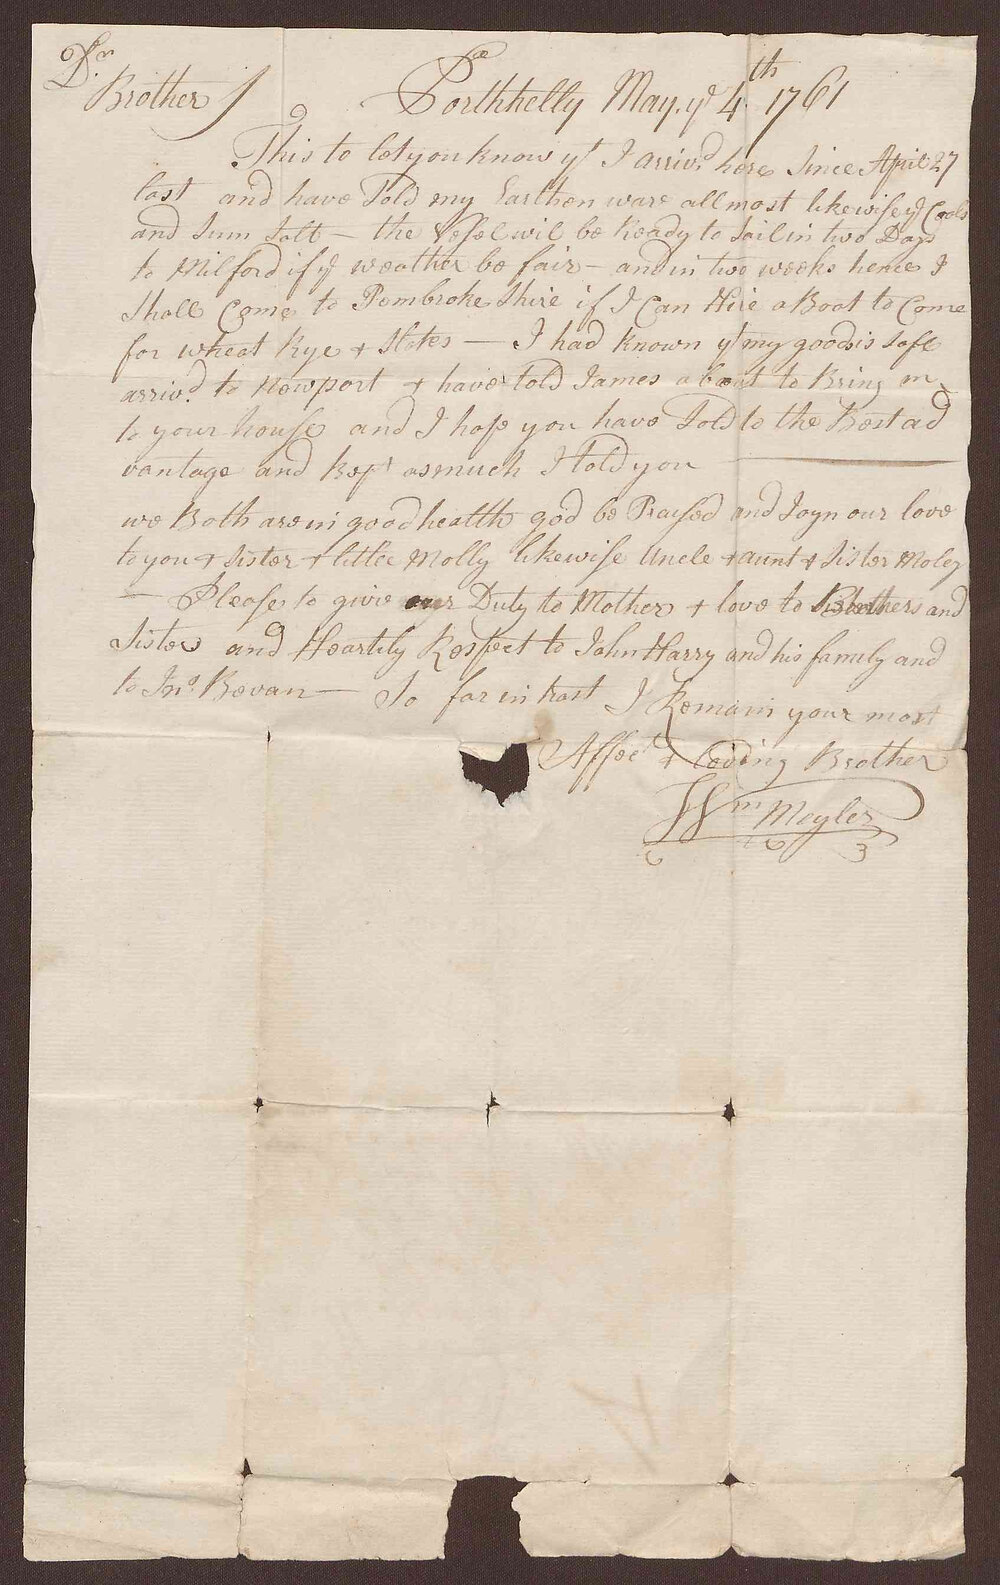 Dr
Brother / Porthhelly May ye 4th 1761
This to let you know yt I arrivd here Since April 27
last and have Sold my Earthen ware allmost likewise ye Coals
and Sum Salt — the Vesel wil be Ready to Sail in two Days
to Milford if ye weather be fair — and in two weeks hence I
Shall Come to Pembroke Shire if I Can Hire a Boat to Come
for wheat Rye + — I had Known yt my goods is Safe
arrivd to Newport + have told James about to Bring m
to your house and I hope you have Sold to the Best ad
vantage and Kept as much I told you
we Both are in good health god be Praised and Joyn our love
to you + Sister + little Molly likewise Uncle + aunt + Sister Moley
— Please to give our Duty to Mother + love to Brothers and
Sister and Heartily Respect to John Harry and his family and
to Jno. Bevan — So far in hast I Remain your most
Affect + Loving Brother
Wm Meyler